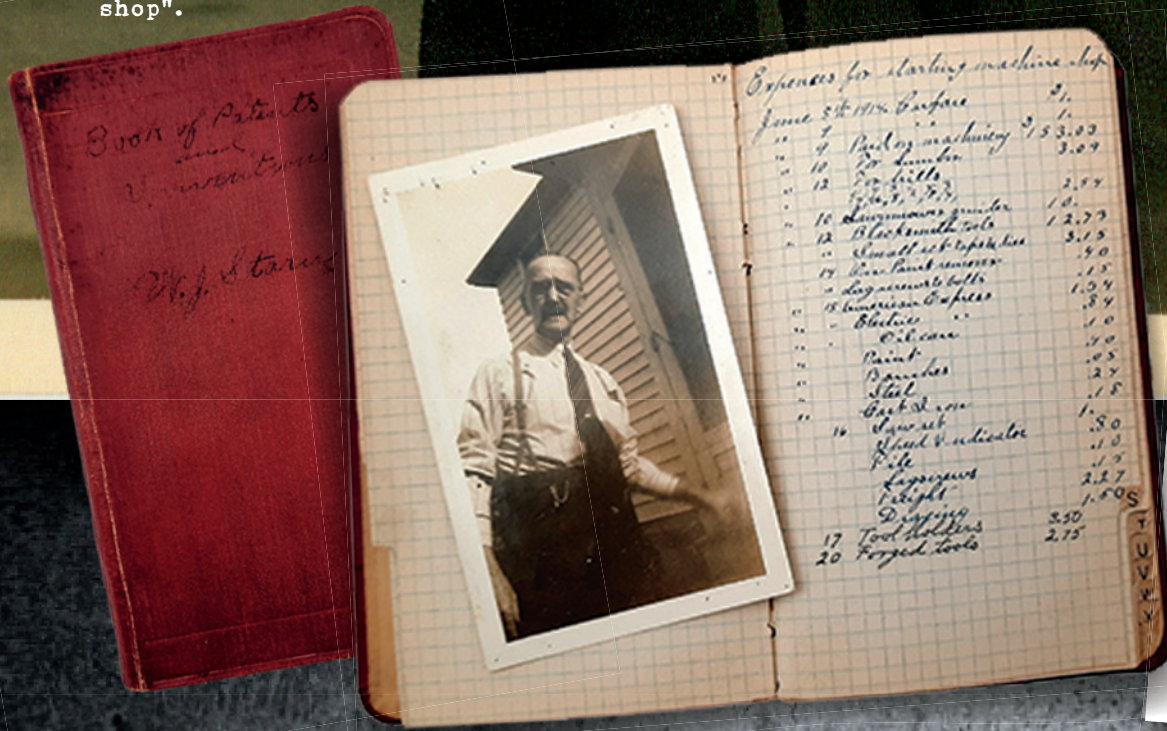 shop".
Book of Patents
and
Inventions
W.J.
Expenses for starting machine shop
June 5th 1914 Carfare $1.
" 7 " " 1.
" 9 Paid on machinery $153.09
" 10 For lumber 3.09
" 12 For bills
" 10 Lawnmower grinder 10.
" 12 Blacksmith tools 12.73
" Small set taps & dies 3.15
" 14 Paint remover .40
" Lagscrews & bolts .15
" 15 American Express 1.34
" Electric " " .84
" " Oil can .10
" Paint
" Steel
" Cast Iron
16 Saw set
Speed Indicator
File
Lagscrews
Freight 2.27
Digging 1.50
17 Tool holders 3.50
20 Forged tools 2.75
S
T
U
V
W
X